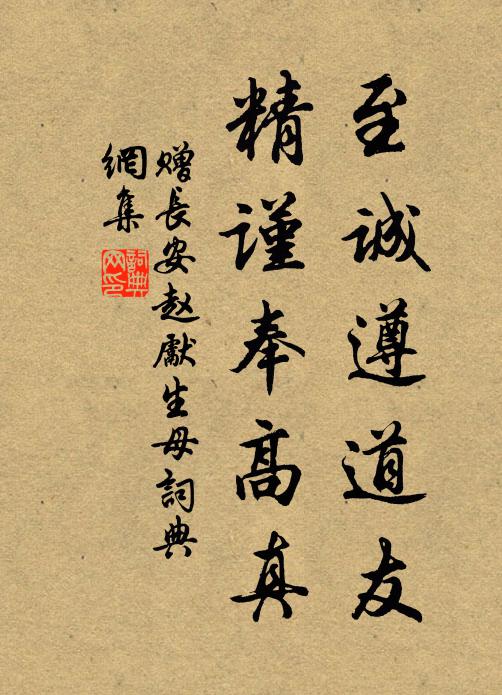 至誠遵道友
精謹奉高真
赠長安赵獻生母詞典
網集
詞典
网印